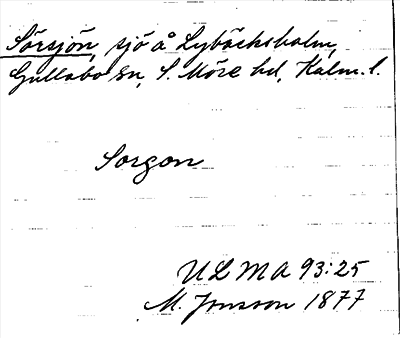 Sörsjön, sjö å Lybäcksholm,
Gullabo sn, S. Möre hd, Kalm. l.
Sorgon
ULMA 93:25
M. Jonsson 1877